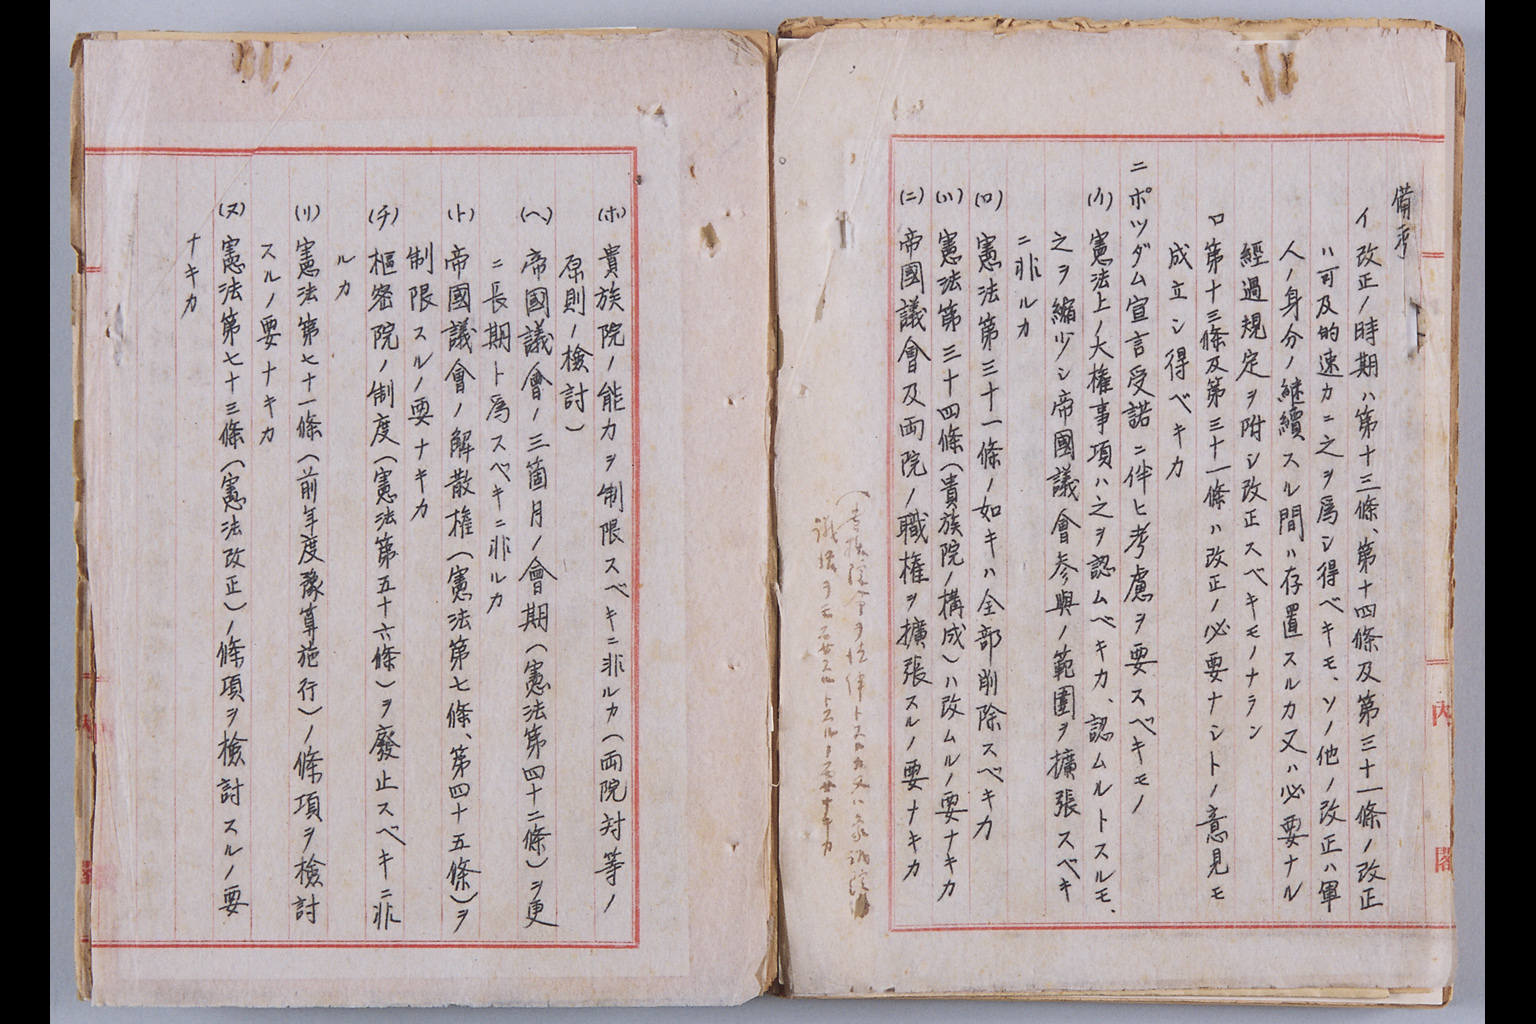 備考
イ 改正ノ時期ハ第十三條、第十四條及第三十一條ノ改正
ハ可及的速カニ之ヲ爲シ得ベキモ、ソノ他ノ改正ハ軍
人ノ身分ノ継續スル間ハ存置スルカ又ハ必要ナル
經過規定ヲ附シ改正スベキモノナラン
ロ 第十三條及第三十一條ハ改正ノ必要ナシトノ意見モ
成立シ得ベキカ
二 ポツダム宣言受諾ニ伴ヒ考慮ヲ要スベキモノ
(イ) 憲法上ノ大権事項ハ之ヲ認ムベキカ、認ムルトスルモ、
之ヲ縮少シ帝國議會参與ノ範圍ヲ擴張スベキ
ニ非ルカ
(ロ) 憲法第三十一條ノ如キハ全部削除スベキカ
(ハ) 憲法第三十四條(貴族院ノ構成)ハ改ムルノ要ナキカ
(ニ) 帝國議會及両院ノ職権ヲ擴張スルノ要ナキカ
(ホ) 貴族院ノ能力ヲ制限スベキニ非ルカ(両院対等ノ
原則ノ檢討)
(ヘ) 帝國議會ノ三箇月ノ會期(憲法第四十二條)ヲ更
ニ長期ト爲スベキニ非ルカ
(ト) 帝國議會ノ解散権(憲法第七條、第四十五條)ヲ
制限スルノ要ナキカ
(チ) 樞密院ノ制度(憲法第五十六條)ヲ廢止スベキニ非
ルカ
(リ) 憲法第七十一條(前年度豫算施行)ノ條項ヲ檢討
スルノ要ナキカ
(ヌ) 憲法第七十三條(憲法改正)ノ條項ヲ檢討スルノ要
ナキカ
内
閣